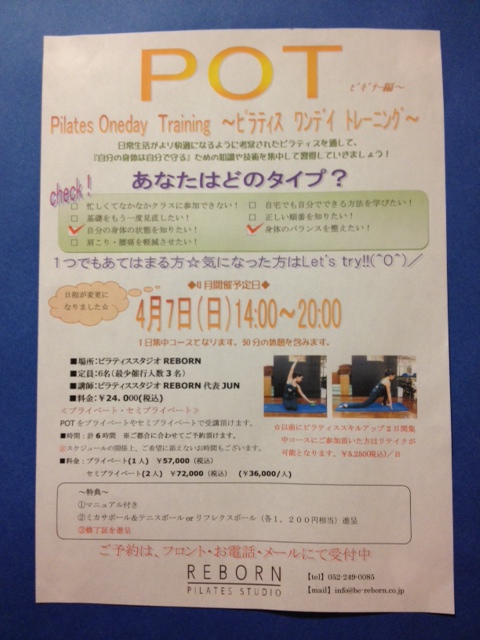 POT
ﾋﾞｷﾞﾅｰ編～
Pilates Oneday Training ～ﾋﾟﾗﾃｨｽ ﾜﾝﾃﾞｲ ﾄﾚｰﾆﾝｸﾞ～
日常生活がより快適になるように考案されたピラティスを通して、
『自分の身体は自分で守る』ための知識や技術を集中して習得していきましょう！
check！
あなたはどのタイプ？
□ 忙しくてなかなかクラスに参加できない！ □ 自宅でも自分でできる方法を学びたい！
□ 基礎をもう一度見直したい！ □ 正しい順番を知りたい！
□ 自分の身体の状態を知りたい！ 身体のバランスを整えたい！
□ 肩こり・腰痛を軽減させたい！
1つでもあてはまる方☆気になった方はLet's try!!(^O^)／
◆4月開催予定日◆
日程が変更に
なりました☆
4月7日(日)14:00～20:00
1日集中コースとなります。50分の休憩を含みます。
■場所：ピラティススタジオ REBORN
■定員：6名（最少催行人数3名）
■講師：ピラティススタジオ REBORN 代表 JUN
■料金：￥24.000(税込)
＜プライベート・セミプライベート＞
POTをプライベートやセミプライベートで受講頂けます。
■時間：計6時間 ※ご都合に合わせてご予約頂けます。
※スケジュールの関係上、ご希望に添えないお時間もございます。
■料金：プライベート(1人) ￥57,000（税込）
セミプライベート(2人) ￥72,000（税込） (￥36,000/人)
☆以前にピラティススキルアップ2日間集
中コースにご参加頂いた方はリテイクが
可能となります。￥5.2500(税込)/日
～特典～
①マニュアル付き
②ミカサボール＆テニスボール or リフレクスボール（各1，200円相当）進呈
③修了証を進呈
ご予約は、フロント・お電話・メールにて受付中
REBORN
PILATES STUDIO
【tel】052-249-0085
【mail】info@be-reborn.co.jp